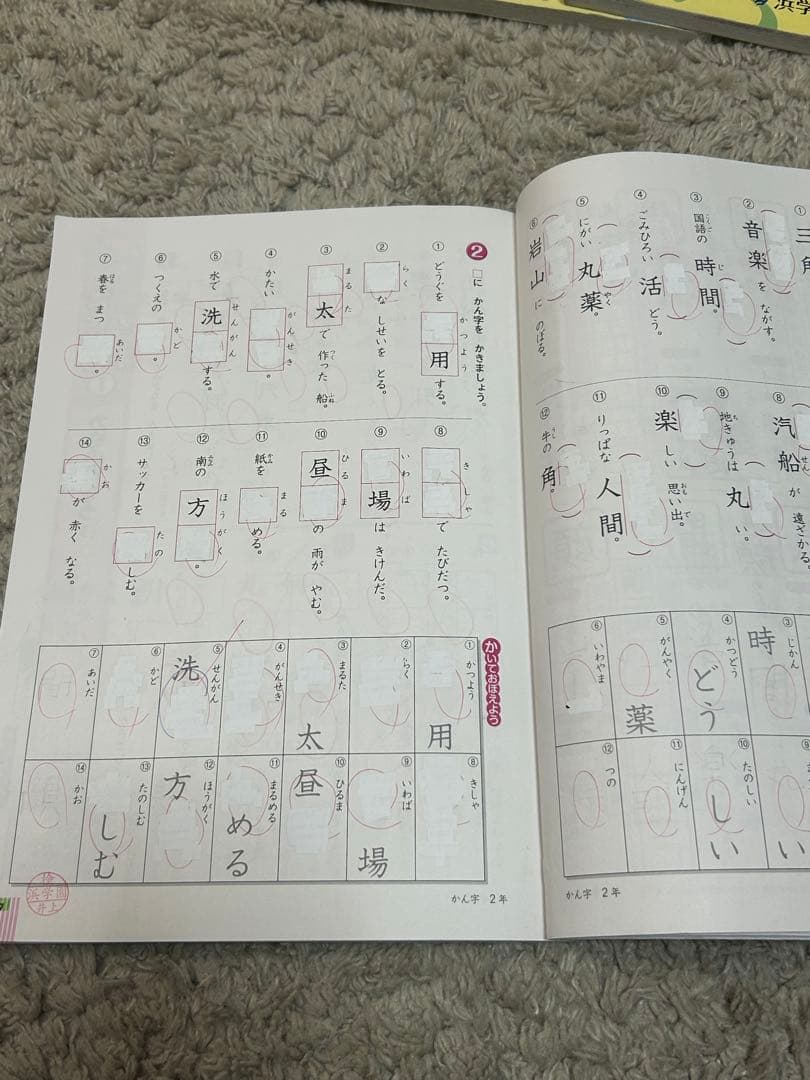 浜学
①
三角
②
音楽を ながす。
③
国語の 時間。
こくご
じ
④
ごみひろい 活どう。
⑤
にがい 丸薬。
やく
⑥
岩山に のぼる。
⑧
汽船が 遠ざかる。
せん
⑨
地きゅうは 丸い。
ち
⑩
楽しい 思い出。
おも
で
⑪
りっぱな 人間。
⑫
牛の 角。
うし
③
じかん
時
④
かつどう
どう
⑤
がんやく
薬
⑥
いわやま
い
⑩
たのしい
しい
⑪
にんげん
⑫
つの
かん字 2年
2
□に かん字を かきましょう。
①
どうぐを 用する。
かつよう
②
なしせいを とる。
らく
③
太で 作った 船。
まるた
つく
ふね
④
かたい
がんせき
。
⑤
水で 洗する。
せんがん
⑥
つくえの
かど
。
⑦
春を まつ
はる
あいだ
。
⑧
で たびだつ。
きしゃ
⑨
場は きけんだ。
いわば
⑩
昼の 雨が やむ。
ひるま
⑪
紙を める。
かみ
まる
⑫
南の 方。
みなみ
ほうがく
⑬
サッカーを しむ。
たの
⑭
が 赤く なる。
かお
かいておぼえよう
①
かつよう
用
②
らく
③
まるた
太
④
がんせき
⑤
せんがん
洗
⑥
かど
⑦
あいだ
⑧
きしゃ
⑨
いわば
場
⑩
ひるま
昼
⑪
まるめる
める
⑫
ほうがく
方
⑬
たのしむ
しむ
⑭
かお
浜学園
井上
かん字 2年